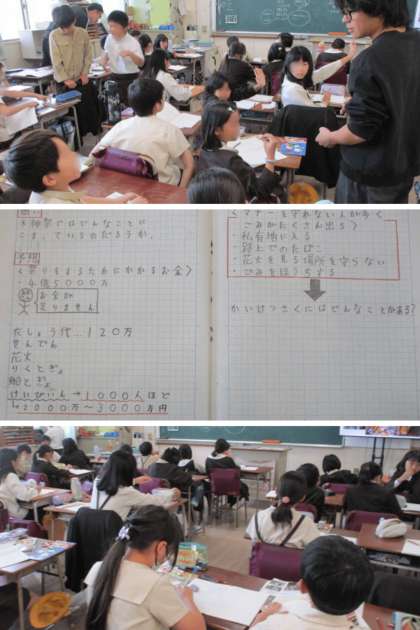 こま、ているのだろうか。
予想
<祭りをするためにかかるお金>
・4億5000万
お金が
足りません
だしょう代…120万
せんでん
花火
りくとぎょ
船とぎょ
けいびいん→1000人ほど
→2000万~3000万円
<マナーを守れない人が多く
ごみがたくさん出る>
・私有地に入る
・路上でのたばこ
・花火を見る場所を守らない
・ごみをほうちする
かいけつさくにはどんなことがある?